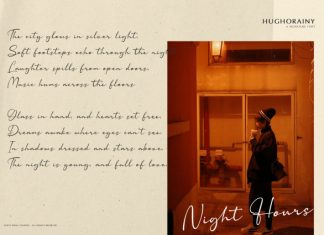 HUGHORAINY
A SIGNATURE FONT
The city glows in silver light.
Soft footsteps echo through the nigh
Laughter spills from open doors.
Music hums across the floors
Glass in hand, and hearts set free.
Dreams awake where eyes can't see.
In shadows dressed and stars above.
The night is young, and full of love.
Night Hours